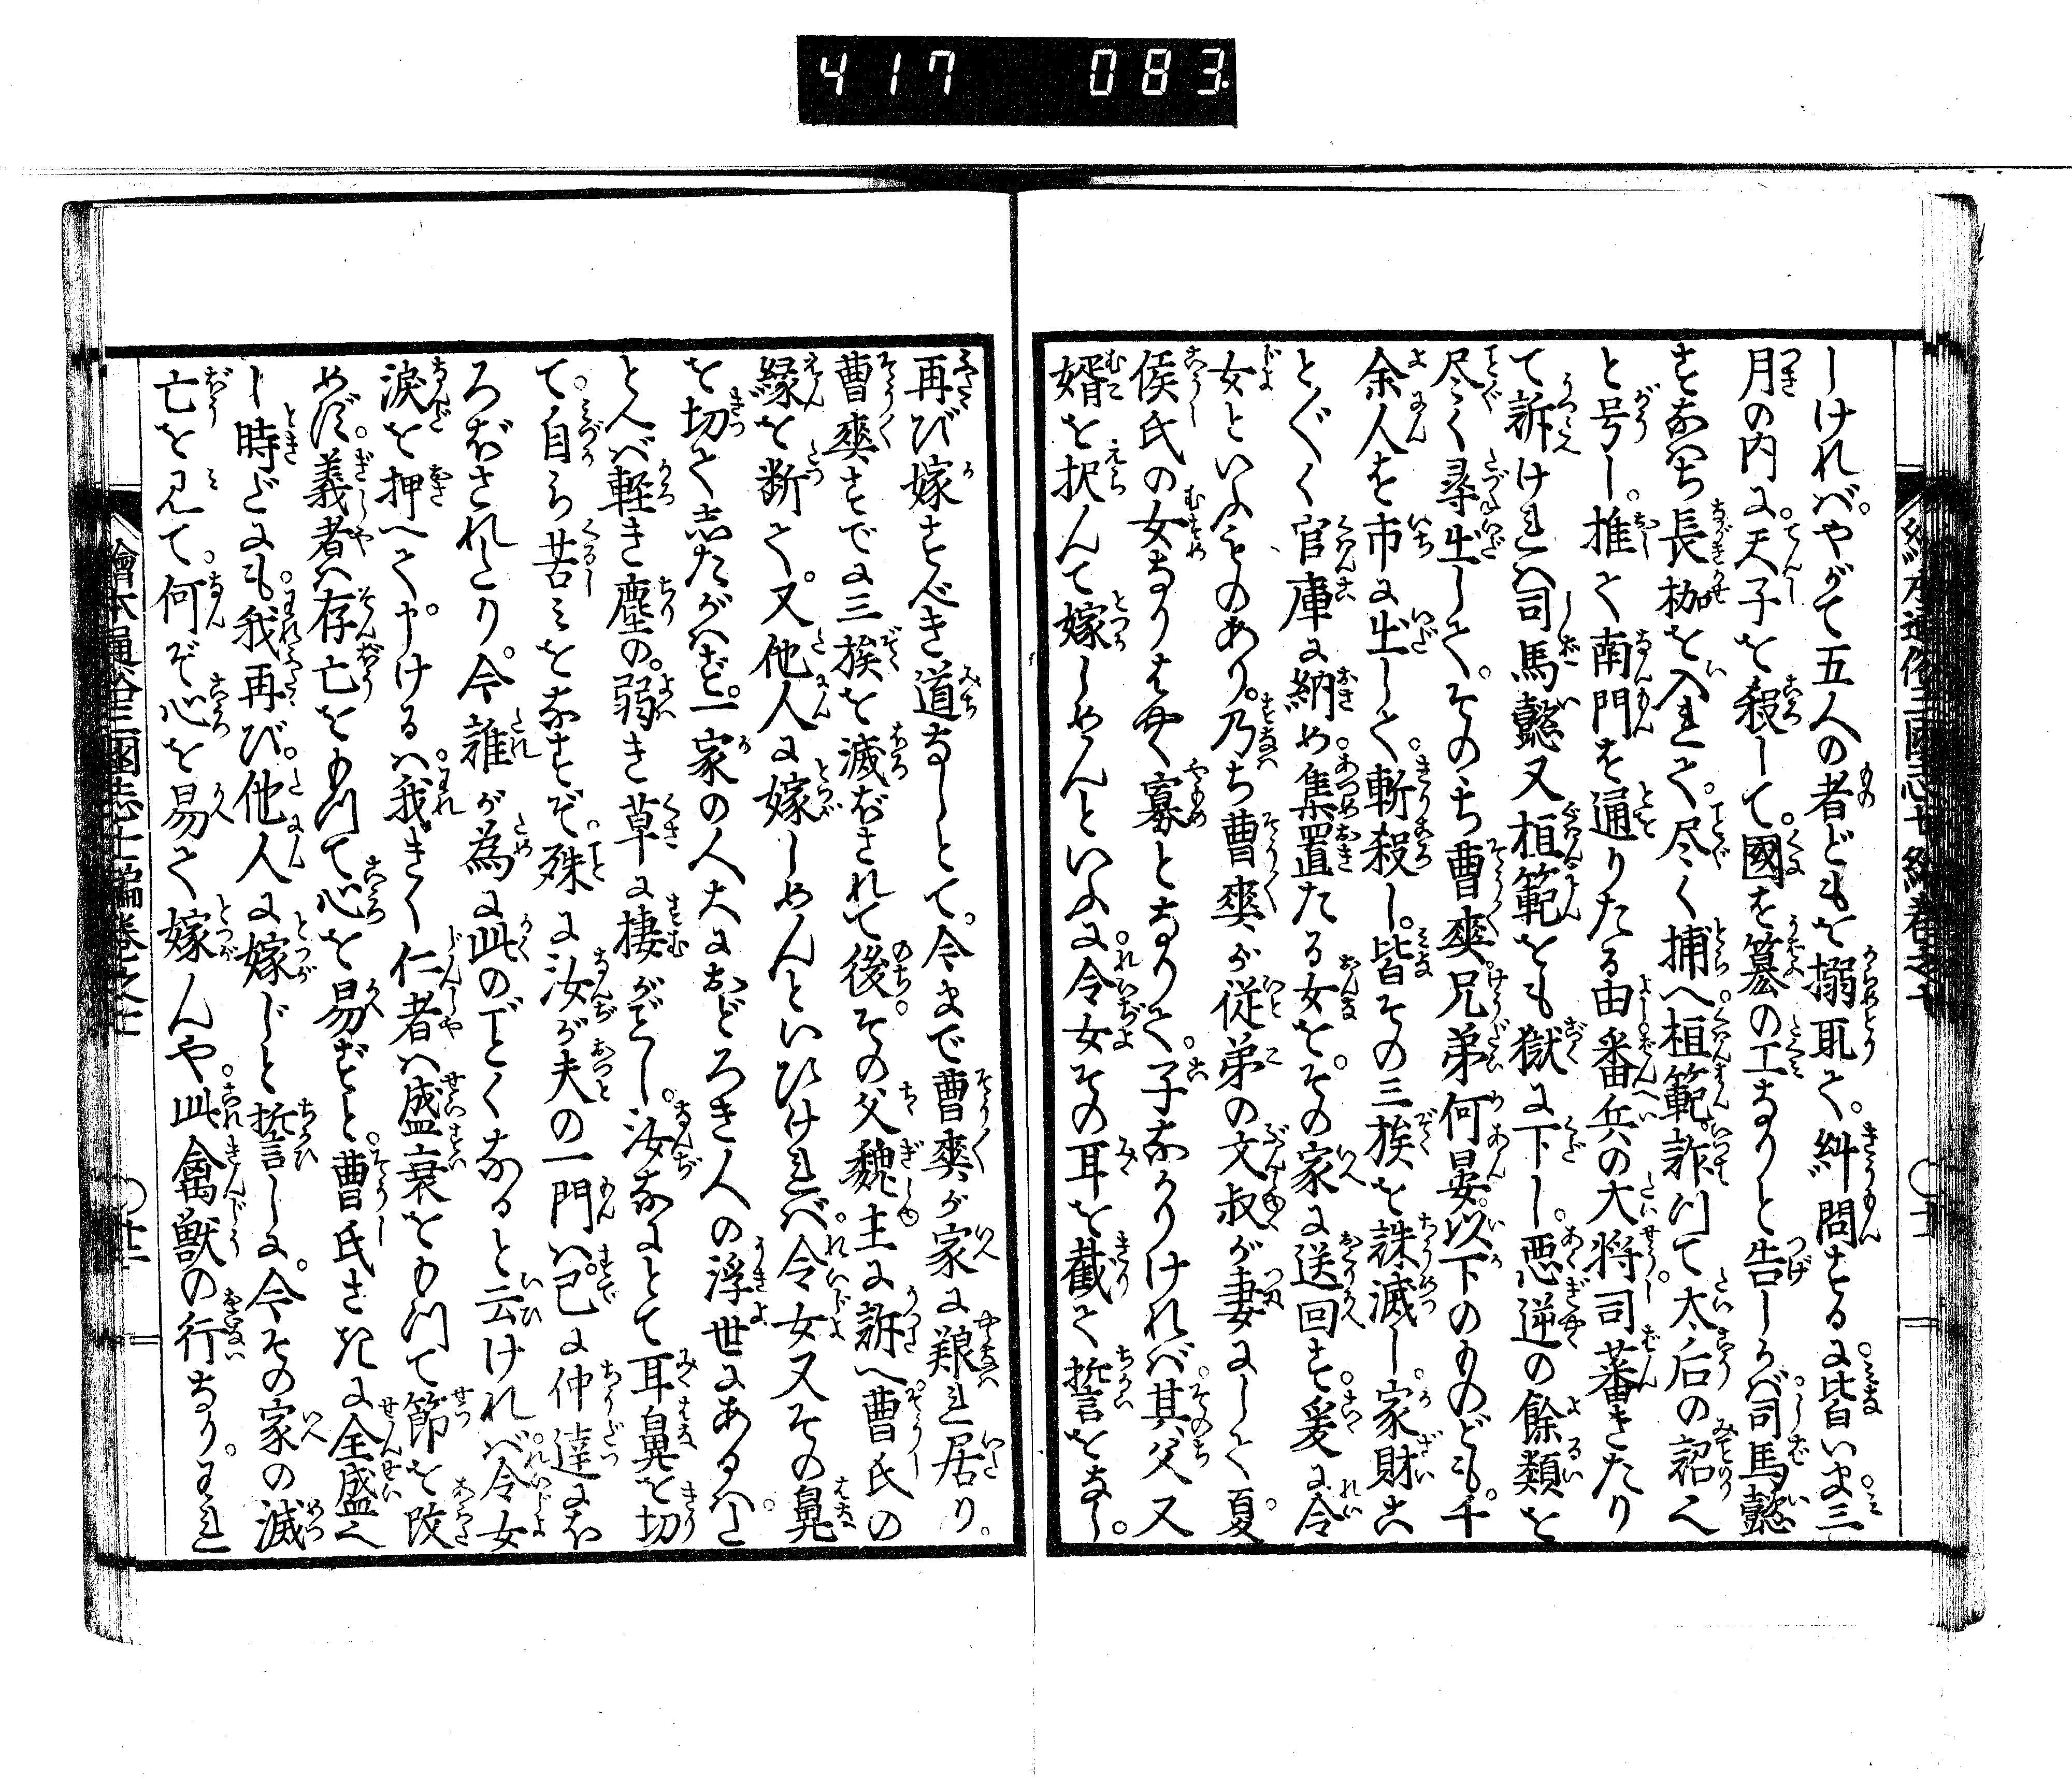 417 083
しければ。やがて五人の者どもを搦取て。糾問するに。皆いま。三
月の内に。天子を殺して。國を簒の工なりと告しかば。司馬懿
すなはち長枷を入させ。尽く捕へ。桓範。詐つて太后の詔
と号し。推て南門を通りたる由。番兵の大将。司蕃きたり
て訴けれは司馬懿又桓範をも獄に下し。悪逆の餘類を
尽く尋出して。そのち曹爽。兄弟何晏。以下のものども。千
余人を市に出して。斬殺し。皆その三族を誅滅し。家財こ
とごとく官庫に納め。集置たる女を。その家に送回す。爰に令
女といふものあり。乃ち曹爽が従弟の文叔が妻にして。夏
侯氏の女なりはやく寡となりて。子なかりければ。其父又
婿を択んで嫁しめんといふに。令女その耳を截て誓をなし。
再び嫁すべき道なしとて。今まで曹爽が家に艱居り。
曹爽すでに三族を滅ぼされて後。その父魏主に訴へ。曹氏の
縁を断て。又他人に嫁しめんといひければ。令女又その鼻
を切てしたがはず。一家の人大におどろき人の浮世にあるは。
とへば軽き塵の。弱き草に棲がごとし。汝なにとて耳鼻を切
て。自ら苦みをなすぞ。殊に汝が夫の一門は。已に仲達にほ
ろぼされたり。今誰が為に此のごとくなると云ければ。令女
涙を押へて。申けるは。我きく仁者は盛衰をもつて節を改
めず。義者は存亡をもつて心を易ずと。曹氏さきに全盛
し時だにも。我再び。他人に嫁じと誓しに。今その家の滅
亡を見て。何ぞ心を易て嫁んや。此禽獣の行なり。われ
繪本通俗三國志七編巻之七